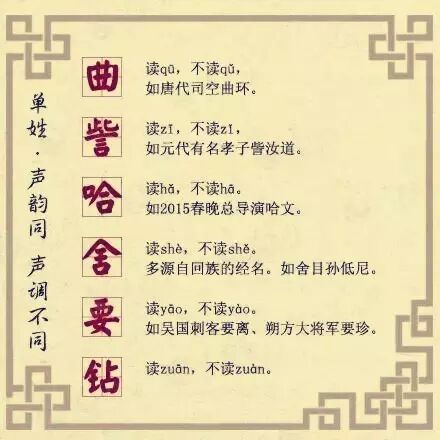 单姓·声韵同 声调不同
曲
读qū，不读qǔ，
如唐代司空曲环。
訾
读zī，不读zī，
如元代有名孝子訾汝道。
哈
读hǎ，不读hā。
如2015春晚总导演哈文。
舍
读shè，不读shě。
多源自回族的经名。如舍目孙低尼。
要
读yāo，不读yào。
如吴国刺客要离、朔方大将军要珍。
钻
读zuān，不读zuàn。